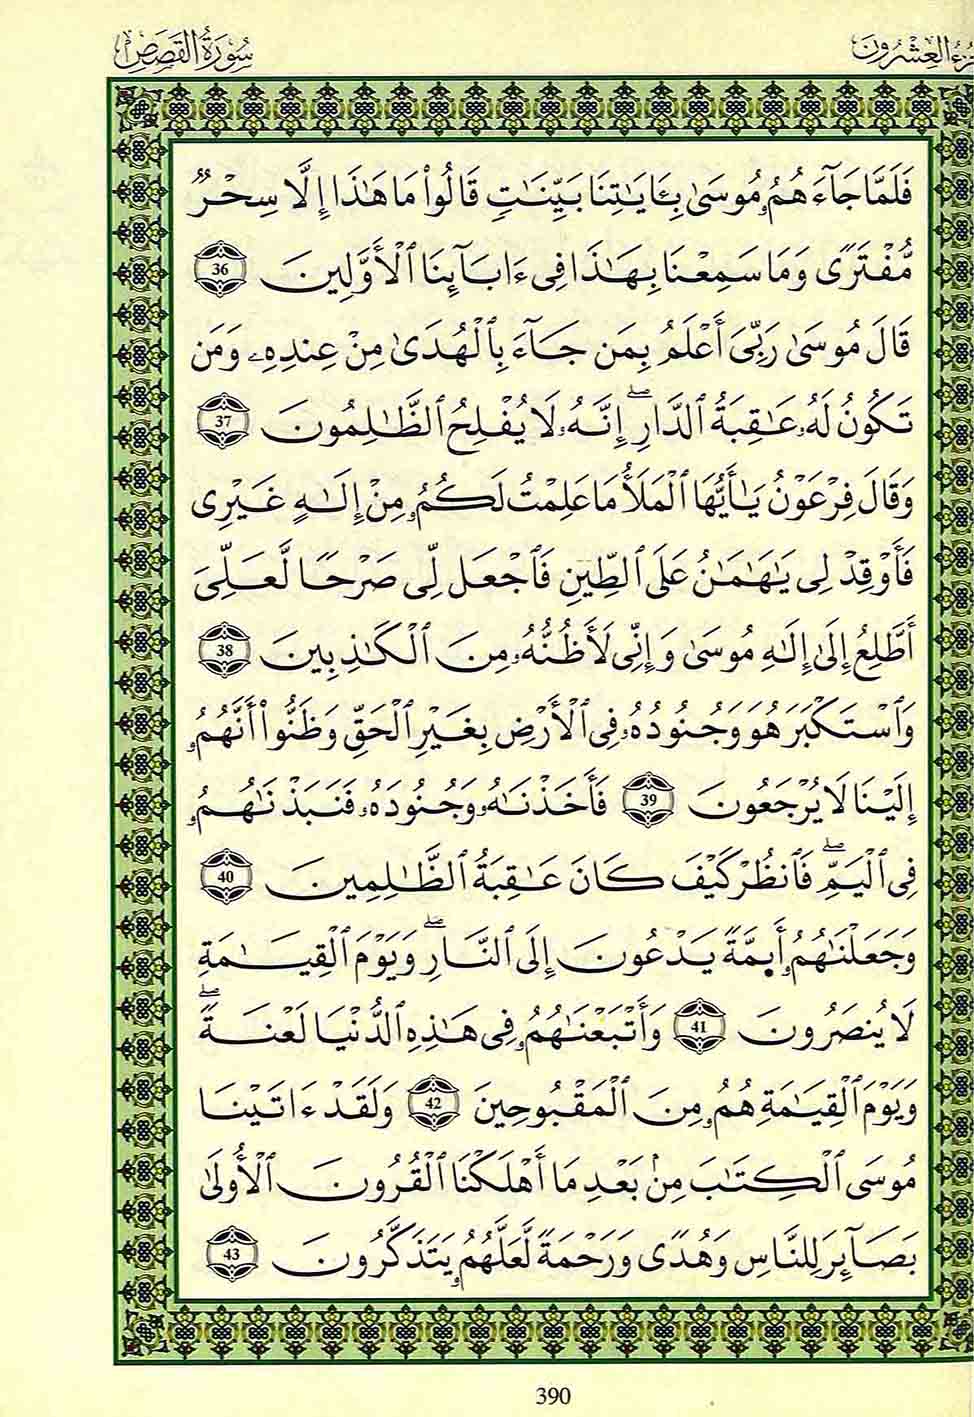 العِشْرُونَ
سُورَةُ القَصَصِ
فَلَمَّا جَآءَهُمُۥ مُوسَىٰ بِـَٔايَٰتِنَا بَيِّنَٰتٍ قَالُوا۟ مَا هَٰذَا إِلَّا سِحْرٌ
مُّفْتَرًى وَمَا سَمِعْنَا بِهَٰذَا فِىٓ ءَابَآئِنَا ٱلْأَوَّلِينَ 36
قَالَ مُوسَىٰ رَبِّىَ أَعْلَمُ بِمَن جَآءَ بِٱلْهُدَىٰ مِنْ عِندِهِۦ وَمَن
تَكُونُ لَهُۥ عَٰقِبَةُ ٱلدَّارِ ۖ إِنَّهُۥ لَا يُفْلِحُ ٱلظَّٰلِمُونَ 37
وَقَالَ فِرْعَوْنُ يَٰٓأَيُّهَا ٱلْمَلَأُ مَا عَلِمْتُ لَكُمُۥ مِنْ إِلَٰهٍ غَيْرِى
فَأَوْقِدْ لِى يَٰهَٰمَٰنُ عَلَى ٱلطِّينِ فَٱجْعَل لِّى صَرْحًا لَّعَلِّىَ
أَطَّلِعُ إِلَىٰ إِلَٰهِ مُوسَىٰ وَإِنِّى لَأَظُنُّهُۥ مِنَ ٱلْكَٰذِبِينَ 38
وَٱسْتَكْبَرَ هُوَ وَجُنُودُهُۥ فِى ٱلْأَرْضِ بِغَيْرِ ٱلْحَقِّ وَظَنُّوٓا۟ أَنَّهُمُۥ
إِلَيْنَا لَا يُرْجَعُونَ 39 فَأَخَذْنَٰهُۥ وَجُنُودَهُۥ فَنَبَذْنَٰهُمُۥ
فِى ٱلْيَمِّ ۖ فَٱنظُرْ كَيْفَ كَانَ عَٰقِبَةُ ٱلظَّٰلِمِينَ 40
وَجَعَلْنَٰهُمُۥ أَىِمَّةً يَدْعُونَ إِلَى ٱلنَّارِ ۖ وَيَوْمَ ٱلْقِيَٰمَةِ
لَا يُنصَرُونَ 41 وَأَتْبَعْنَٰهُمُۥ فِى هَٰذِهِ ٱلدُّنْيَا لَعْنَةً ۖ
وَيَوْمَ ٱلْقِيَٰمَةِ هُمُۥ مِنَ ٱلْمَقْبُوحِينَ 42 وَلَقَدْ ءَاتَيْنَا
مُوسَى ٱلْكِتَٰبَ مِنۢ بَعْدِ مَا أَهْلَكْنَا ٱلْقُرُونَ ٱلْأُولَىٰ
بَصَآئِرَ لِلنَّاسِ وَهُدًى وَرَحْمَةً لَّعَلَّهُمُۥ يَتَذَكَّرُونَ 43
390